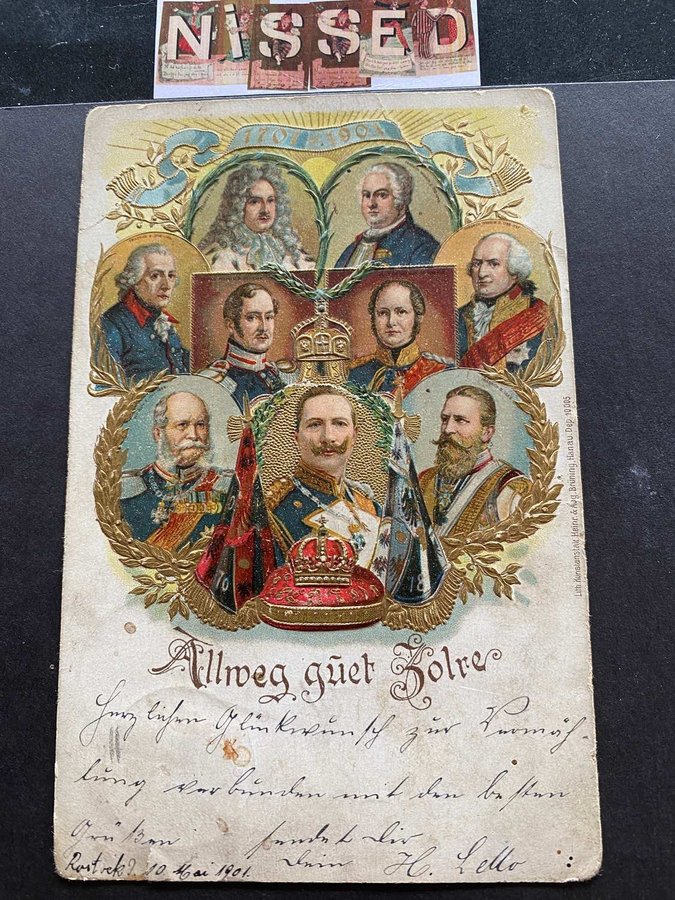 NiSSED
1701 1901
Allweg guet Zolre
Lith. Kunstanstalt Heinr. & Aug. Brüning, Hanau. Dep. 10 005
70
18
Herzlichen Glückwunsch zur Vermäh-
lung verbunden mit den besten
Grüßen sendet Dir
Rostock 10 Mai 1901. Dein H.